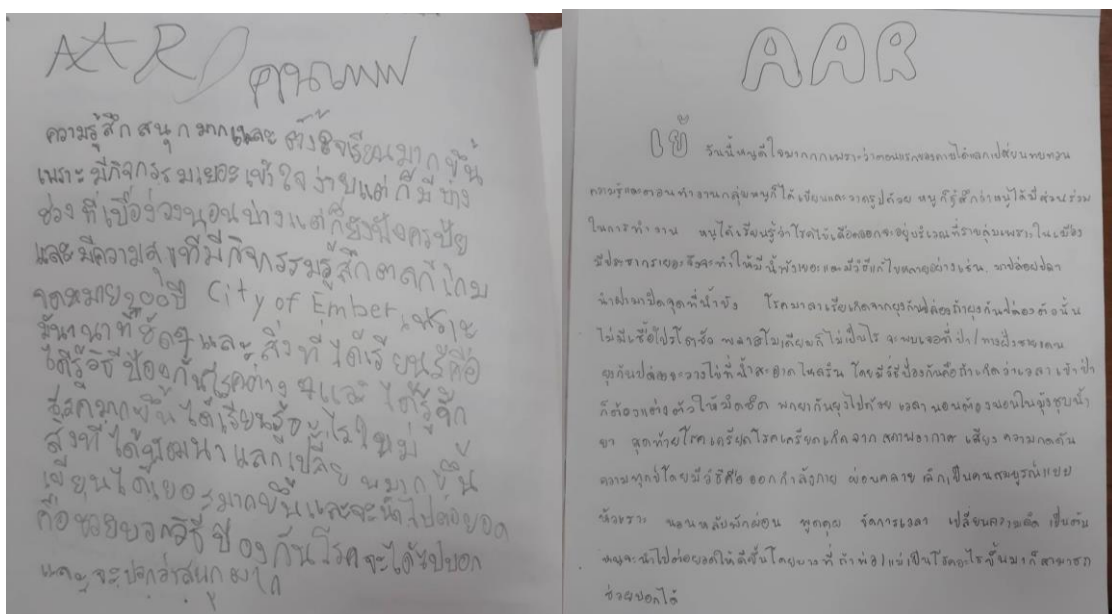 AAR
คุณเทพ
ความรู้สึก สนุกมากและ ตั้งใจเรียนมากขึ้น
เพราะ มีกิจกรรมเยอะ เข้าใจง่ายแต่ ก็มีบาง
ช่วงที่เบื่อง่วงนอนบ้างแต่ก็ยัง
และมีความสุขที่มีกิจกรรมรู้สึก
จดหมาย 200 ปี City of Ember เพราะ
และ สิ่งที่ได้เรียนรู้คือ
ได้รู้วิธีป้องกันโรคต่างๆและ ได้รู้จัก
มากขึ้น ได้เรียนรู้อะไรใหม่
สิ่งที่ได้พัฒนา แลกเปลี่ยนมากขึ้น
เขียนได้เยอะมากขึ้นและจะนำไปต่อยอด
คือช่วยบอกวิธีป้องกันโรคจะได้ไปบอก
และจะบอกว่าสนุก
AAR
เย้ วันนี้หนูดีใจมากกกเพราะว่าตอนแรกของคาบได้แลกเปลี่ยนทบทวน
ความรู้และตอนทำงานกลุ่มหนูก็ได้เขียนและวาดรูปด้วย หนูก็รู้สึกว่าหนูได้มีส่วนร่วม
ในการทำงาน หนูได้เรียนรู้ว่าโรคไข้เลือดออกจะอยู่บริเวณที่ราบลุ่มเพราะในเมือง
มีประชากรเยอะจึงจะทำให้มีน้ำขังเยอะและมีวิธีแก้ไขหลายอย่างเช่น มาปล่อยปลา
นำฝามาปิดจุดที่น้ำขัง โรคมาลาเรียเกิดจากยุงก้นปล่องถ้ายุงก้นปล่องตัวนั้น
ไม่มีเชื้อโปรโตซัว พลาสโมเดียมก็ไม่เป็นไร จะพบเจอที่ป่า/ทางฝั่งชายแดน
ยุงก้นปล่องจะวางไข่ที่น้ำสะอาดไหลริน โดยมีวิธีป้องกันคือถ้าเกิดว่าเวลาเข้าป่า
ก็ต้องแต่งตัวให้มิดชิด พกยากันยุงไปด้วย เวลานอนต้องนอนในมุ้งชุบน้ำ
ยา สุดท้ายโรคเครียดโรคเครียดเกิดจาก สภาพอากาศ เสียง ความกดดัน
ความทุกข์โดยมีวิธีคือ ออกกำลังกาย ผ่อนคลาย เลิกเป็นคนสมบูรณ์แบบ
หัวเราะ นอนหลับพักผ่อน พูดคุย จัดการเวลา เปลี่ยนความคิด เป็นต้น
หนูจะนำไปต่อยอดให้ดีขึ้นโดยบางที ถ้าพ่อ/แม่เป็นโรคอะไรขึ้นมาก็สามารถ
ช่วยบอกได้